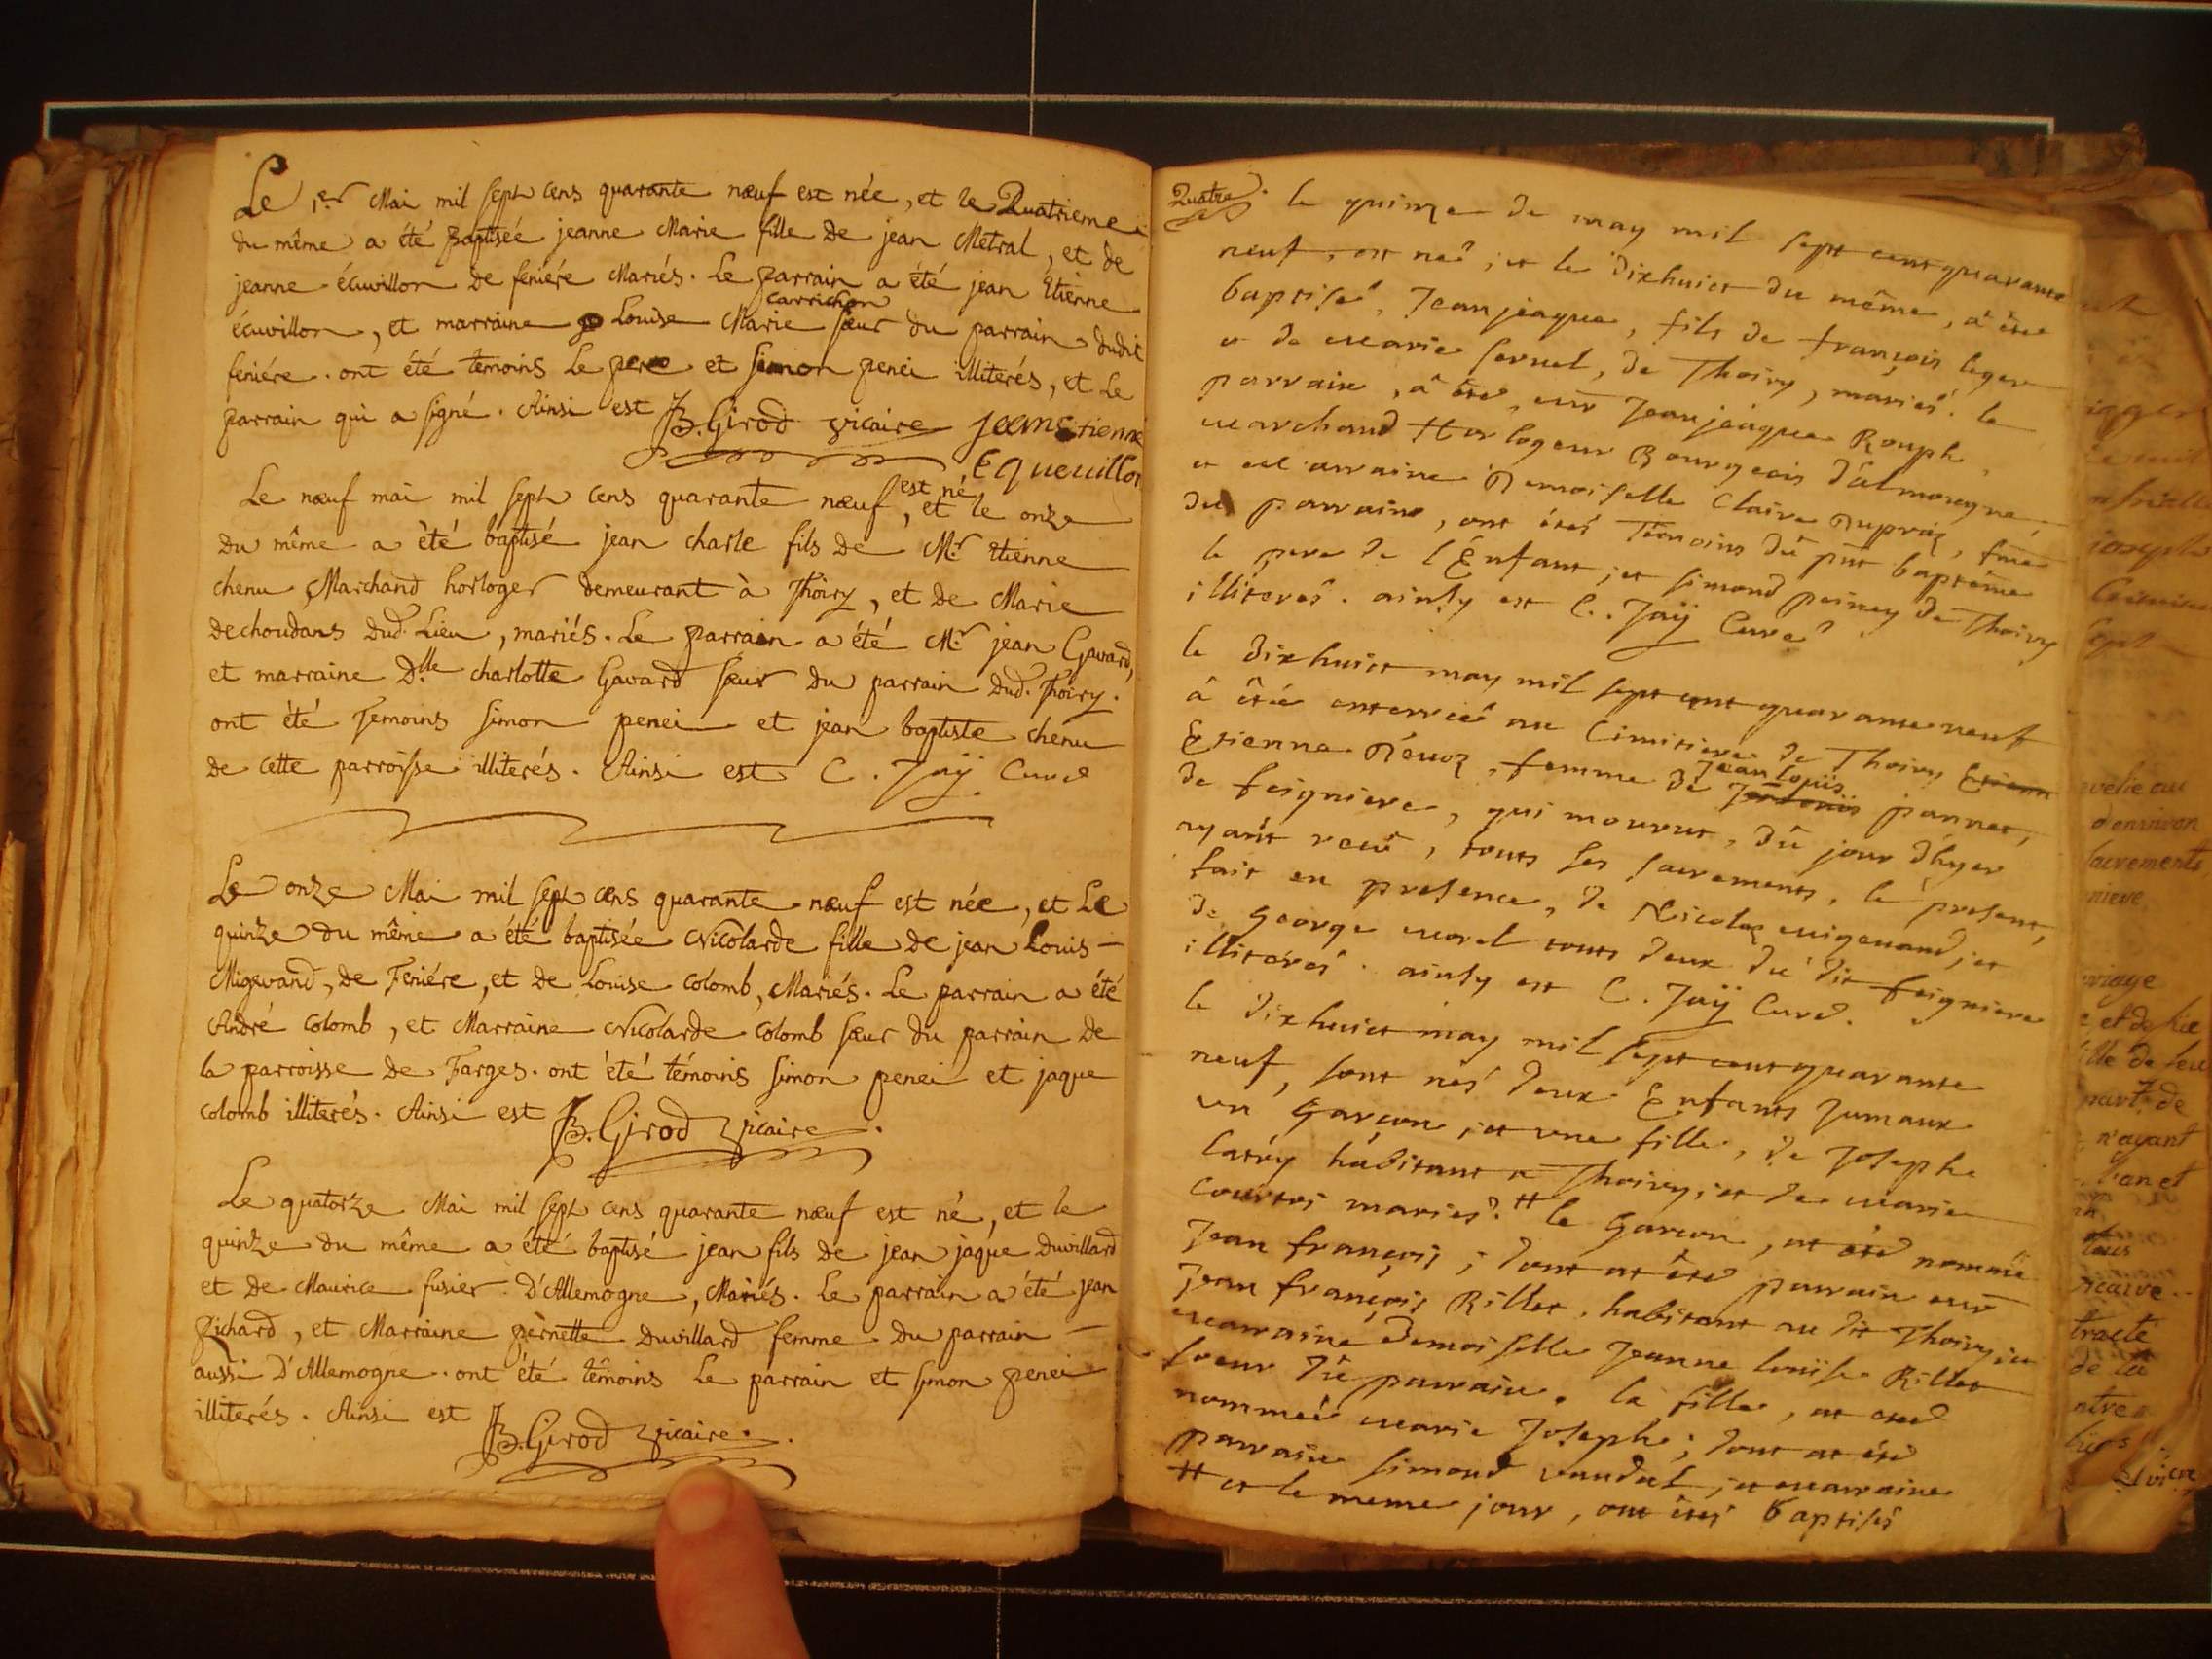 Le 1.er Mai mil sept cens quarante nœuf est née, et le Quatrieme
du même a été Baptisée jeanne Marie fille de jean Metral, et de
jeanne écuvillon de feniére Mariés. Le parrain a été jean Etienne
carrichon
écuvillon, et marraine Louise Marie sœur du parrain dudit
feniére. ont été temoins Le pere et simon penei illiterés, et Le
parrain qui a signé. Ainsi est JB. Girod vicaire jean Etienne
Equeuillon
est né
Le nœuf mai mil sept cens quarante nœuf, et le onze
du même a été baptisé jean charle fils de M.r Etienne
chenu Marchand horloger demeurant à Thoiry, et de Marie
dechoudans dud. Lieu, mariés. Le parrain a été M.r jean Gavard,
et marraine D.lle charlotte Gavard sœur du parrain dud. Thoiry.
ont été Temoins simon penei et jean baptiste chenu
de cette parroisse illiterés. Ainsi est C. Jaÿ Curé
Le onze Mai mil sept cens quarante nœuf est née, et Le
quinze du même a été baptisée Nicolarde fille de jean Louis
Migevand, de Feniére, et de Louise colomb, Mariés. Le parrain a été
André colomb, et Marraine Nicolarde colomb sœur du parrain de
la parroisse de Farges. ont été témoins simon penei et jaque
colomb illiterés. Ainsi est JB. Girod vicaire.
Le quatorze Mai mil sept cens quarante nœuf est né, et le
quinze du même a été baptisé jean fils de jean jaque Duvillard
et de Maurice fusier D'Allemogne, Mariés. Le parrain a été jean
Pichard, et Marraine pernette Duvillard femme du parrain
aussi D'Allemogne. ont été témoins Le parrain et simon penei
illiterés. Ainsi est JB. Girod vicaire.
Quatre. le quinze de may mil sept cent quarante
neuf, est neé, et le dixhuict du même, a êté
baptisé, Jean jeaque, fils de françois leger
et de Marie servel, de Thoiry, mariés. le
parrain, a êté, Jean jeaque Rouph
Marchand Horlogeur Bourgeois d'almoragne
et Marraine Demoiselle Claire Dupraz, feme
du parrain, ont étés Témoins du pnt baptême
le pere de l'Enfant, et simond peiney de Thoiry
illiterés. ainsy est C. Jaÿ Curé
le dixhuict may mil sept cent quarante neuf
â êté enterrée au Cimitiere de Thoiry
Jean Loüis
Etienna, femme de pannet,
de feigniere, qui mourut, du jour d'hyer
ayant reçû, touts ses sacrements, le present,
fait en presence, de Nicolaz Migevand, et
de George Morel touts deux du dit feigniere
illiterés. ainsy est C. Jaÿ Curé.
le dixhuict may mil sept cent quarante
neuf, sont nés deux Enfants Jumaux
un Garçon, et une fille, de Josephe
habitant a Thoiry, et de Marie
mariés. # le Garçon, at été nommé
Jean françois; dont at été parrain
jean françois Rillet, habitant au dit Thoiry, et
Marraine Demoiselle Jeanne louise Rillet
sœur du parrain. la fille, at été
nommée Marie Josephe; dont at été
parrain simond vaudel, et marraine
# et le meme jour, ont étés baptisés